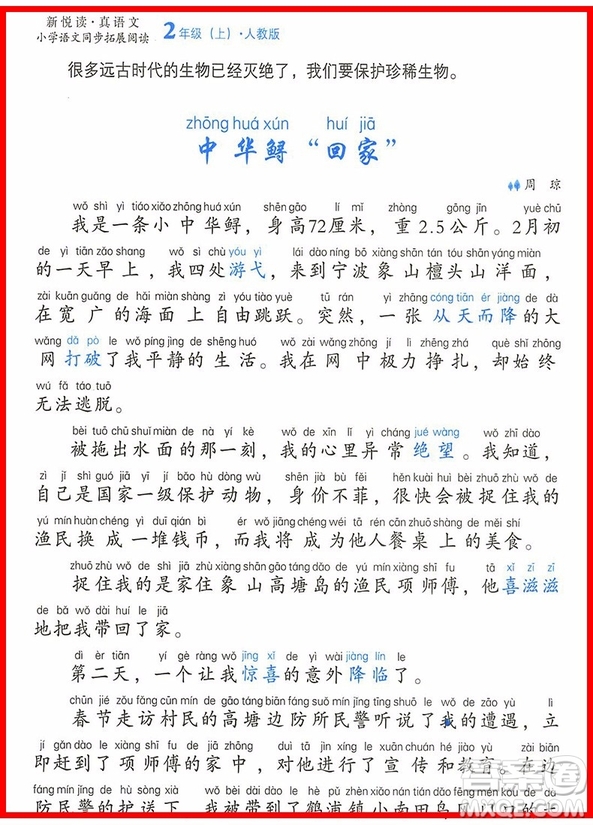 新悦读·真语文
小学语文同步拓展阅读 2年级(上)·人教版
很多远古时代的生物已经灭绝了，我们要保护珍稀生物。
zhōng huá xún huí jiā
中华鲟“回家”
周 琼
wǒ shì yì tiáo xiǎo zhōng huá xún shēn gāo lí mǐ zhòng gōng jīn yuè chū
我是一条小中华鲟，身高72厘米，重2.5公斤。2月初
de yì tiān zǎo shang wǒ sì chù yóu yì lái dào níng bō xiàng shān tán tóu shān yáng miàn
的一天早上，我四处游弋，来到宁波象山檀头山洋面，
zài kuān guǎng de hǎi miàn shàng zì yóu tiào yuè tū rán yì zhāng cóng tiān ér jiàng de dà
在宽广的海面上自由跳跃。突然，一张从天而降的大
wǎng dǎ pò le wǒ píng jìng de shēng huó wǒ zài wǎng zhōng jí lì zhēng zhá què shǐ zhōng
网打破了我平静的生活。我在网中极力挣扎，却始终
wú fǎ táo tuō
无法逃脱。
bèi tuō chū shuǐ miàn de nà yí kè wǒ de xīn lǐ yì cháng jué wàng wǒ zhī dào
被拖出水面的那一刻，我的心里异常绝望。我知道，
zì jǐ shì guó jiā yī jí bǎo hù dòng wù shēn jià bù fěi hěn kuài huì bèi zhuō zhù wǒ de
自己是国家一级保护动物，身价不菲，很快会被捉住我的
yú mín huàn chéng yì duī qián bì ér wǒ jiāng chéng wéi tā rén cān zhuō shàng de měi shí
渔民换成一堆钱币，而我将成为他人餐桌上的美食。
zhuō zhù wǒ de shì jiā zhù xiàng shān gāo táng dǎo de yú mín xiàng shī fu tā xǐ zī zī
捉住我的是家住象山高塘岛的渔民项师傅，他喜滋滋
de bǎ wǒ dài huí le jiā
地把我带回了家。
dì èr tiān yí gè ràng wǒ jīng xǐ de yì wài jiàng lín le
第二天，一个让我惊喜的意外降临了。
chūn jié zǒu fǎng cūn mín de gāo táng biān fáng suǒ mín jǐng tīng shuō le wǒ de zāo yù lì
春节走访村民的高塘边防所民警听说了我的遭遇，立
jí gǎn dào le xiàng shī fu de jiā zhōng duì tā jìn xíng le xuān chuán hé jiào yù zài biān
即赶到了项师傅的家中，对他进行了宣传和教育。在边
fáng mín jǐng de hù sòng xià
防民警的护送下